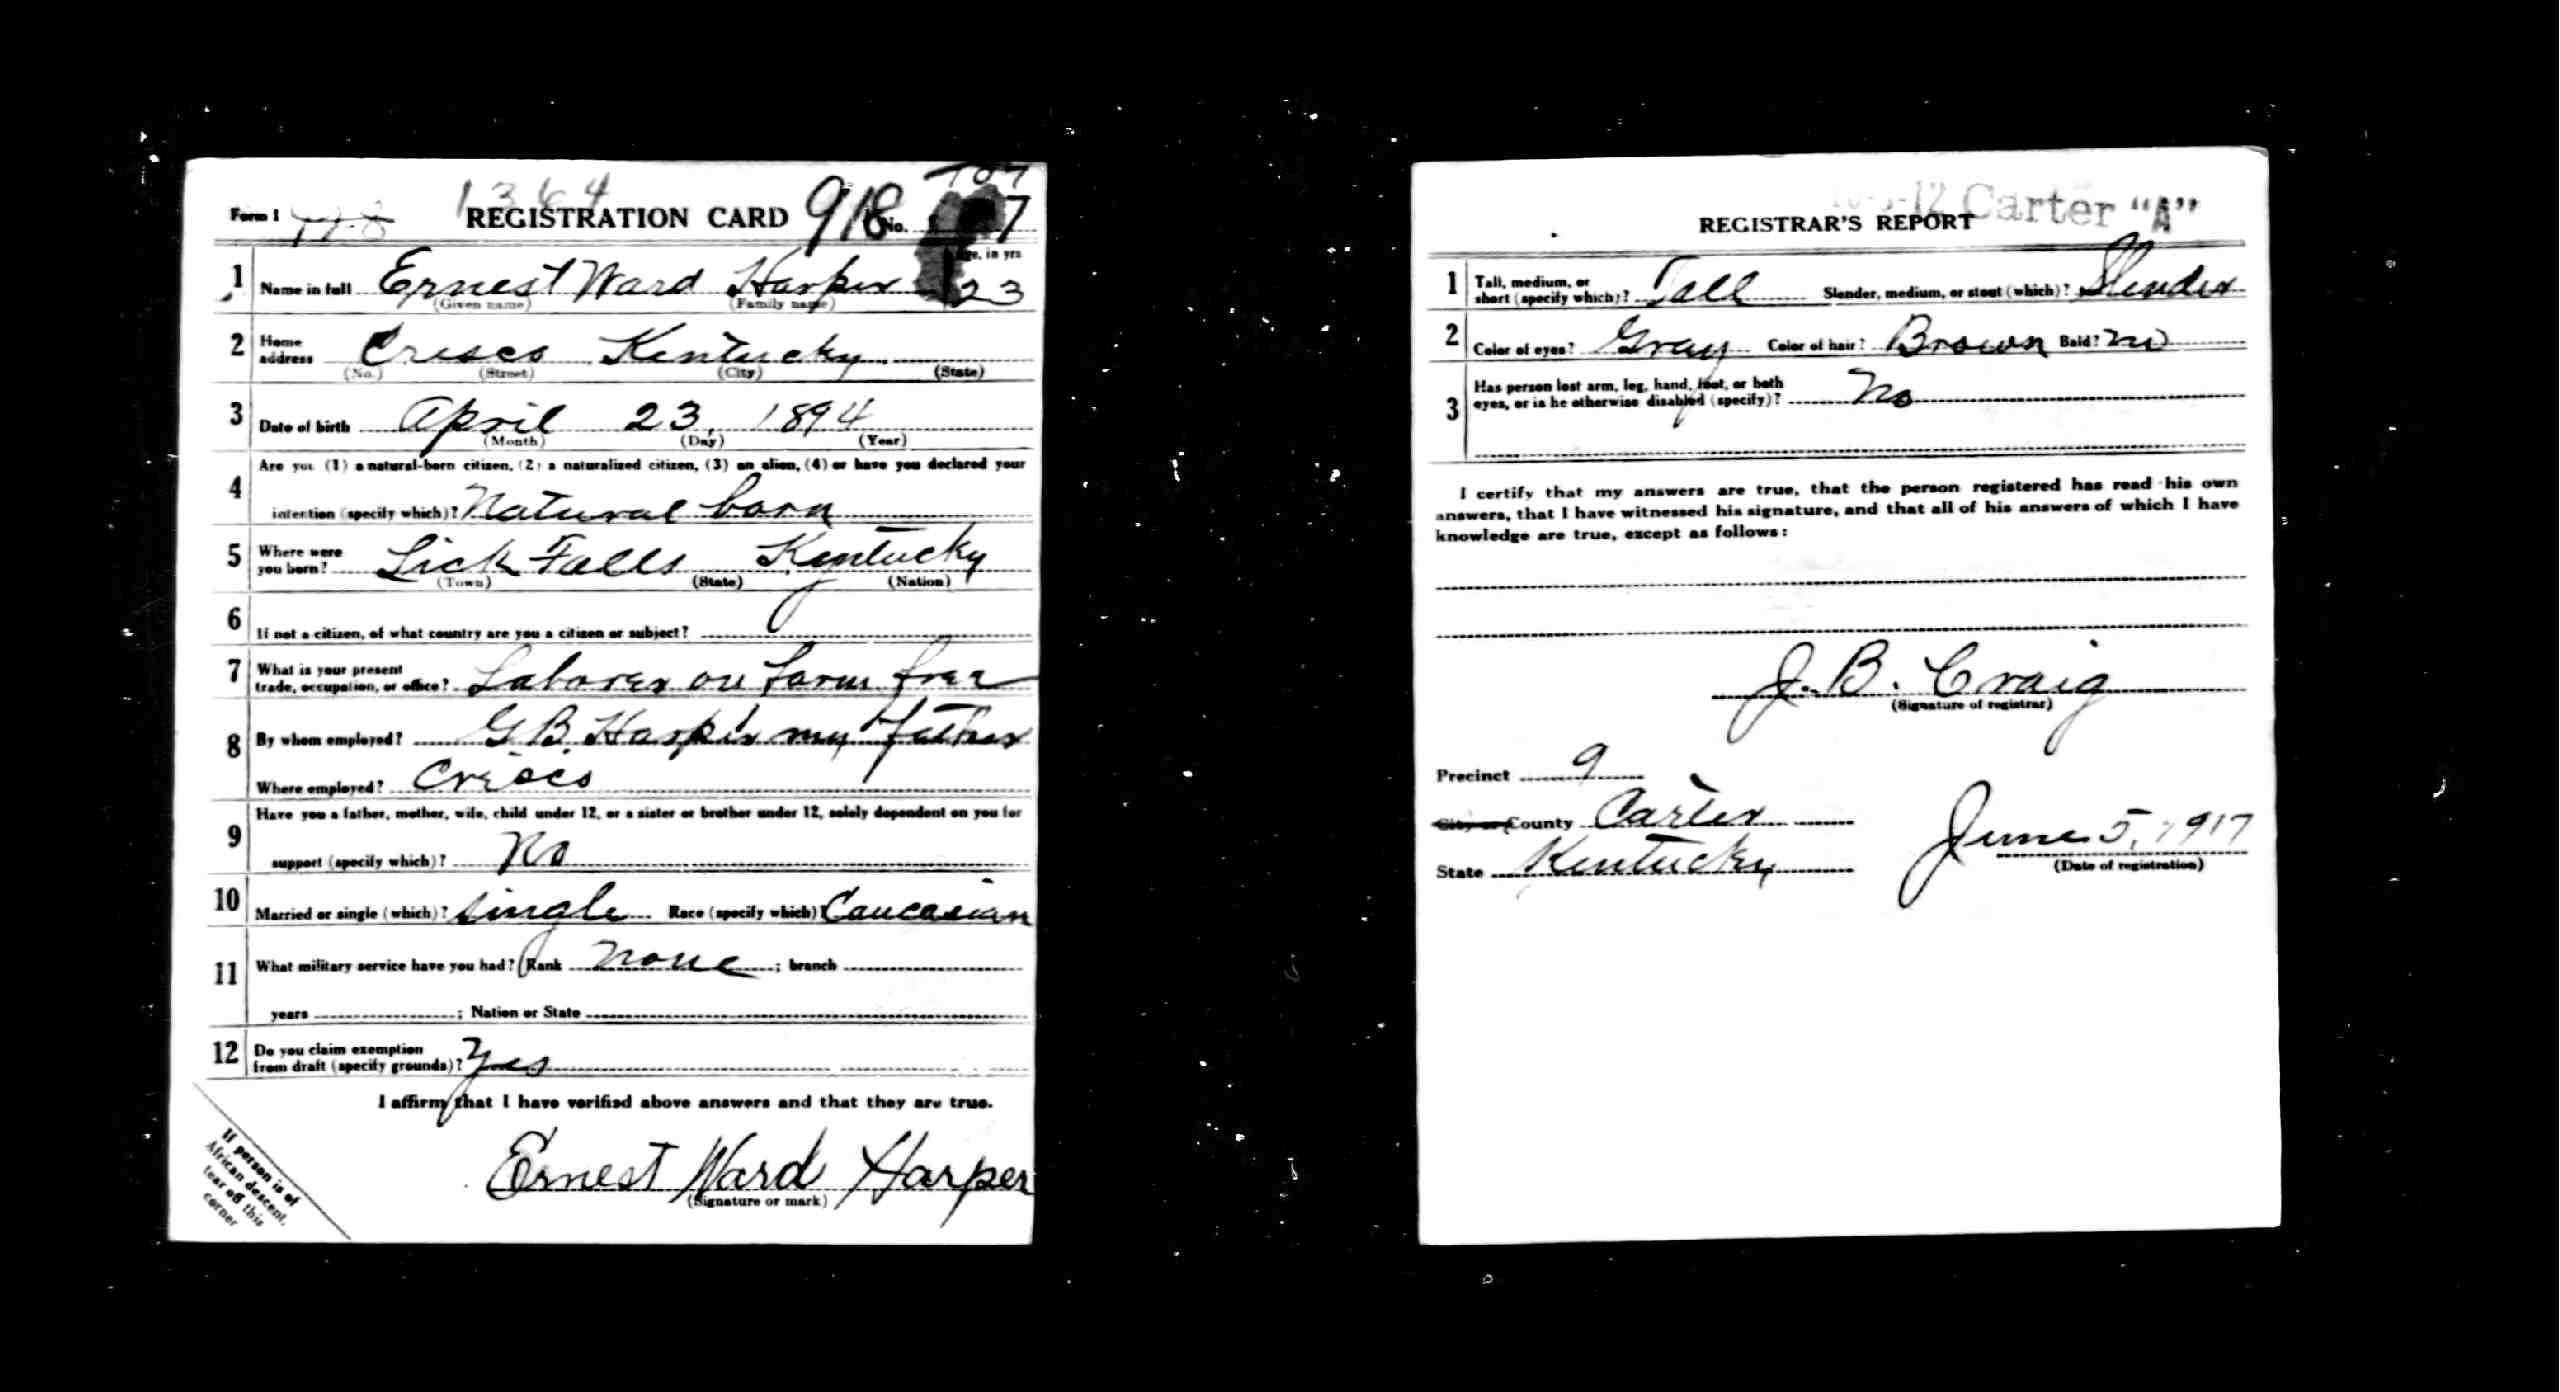 1364
Form 1 REGISTRATION CARD 918 No. 7
Age, in yrs
1 Name in full Ernest Ward Harper 23
(Given name) (Family name)
2 Home address Crisco Kentucky
(No.) (Street) (City) (State)
3 Date of birth April 23, 1894
(Month) (Day) (Year)
4 Are you (1) a natural-born citizen, (2) a naturalized citizen, (3) an alien, (4) or have you declared your
intention (specify which)? Natural born
5 Where were you born? Lick Falls Kentucky
(Town) (State) (Nation)
6 If not a citizen, of what country are you a citizen or subject?
7 What is your present
trade, occupation, or office? Laborer on farm for
8 By whom employed? G B. Harper my father
Where employed? Crisco
9 Have you a father, mother, wife, child under 12, or a sister or brother under 12, solely dependent on you for
support (specify which)? No
10 Married or single (which)? single Race (specify which)? Caucasian
11 What military service have you had? Rank none ; branch
years ; Nation or State
12 Do you claim exemption
from draft (specify grounds)? Yes
I affirm that I have verified above answers and that they are true.
Ernest Ward Harper
(Signature or mark)
If person is of
African descent,
tear off this
corner
Carter "A"
REGISTRAR'S REPORT
1 Tall, medium, or
short (specify which)? Tall Slender, medium, or stout (which)? Slender
2 Color of eyes? Gray Color of hair? Brown Bald? no
3 Has person lost arm, leg, hand, foot, or both
eyes, or is he otherwise disabled (specify)? No
I certify that my answers are true, that the person registered has read his own
answers, that I have witnessed his signature, and that all of his answers of which I have
knowledge are true, except as follows:
J. B. Craig
(Signature of registrar)
Precinct 9
City or County Carter
State Kentucky
June 5, 1917
(Date of registration)